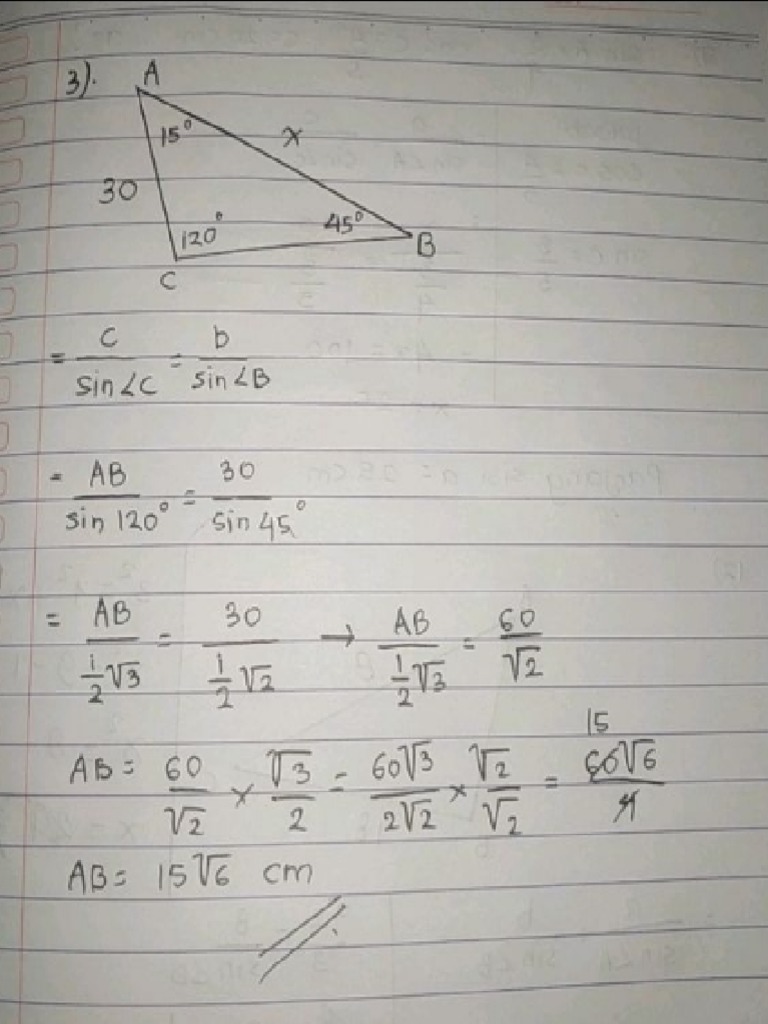 3).
A
15° x
30
120° 45° B
C
= c/sin∠C = b/sin∠B
= AB/sin 120° = 30/sin 45°
= AB/(1/2 √3) = 30/(1/2 √2) → AB/(1/2 √3) = 60/√2
15
AB = 60/√2 × √3/2 = 60√3/2√2 × √2/√2 = 60√6/4
AB = 15√6 cm